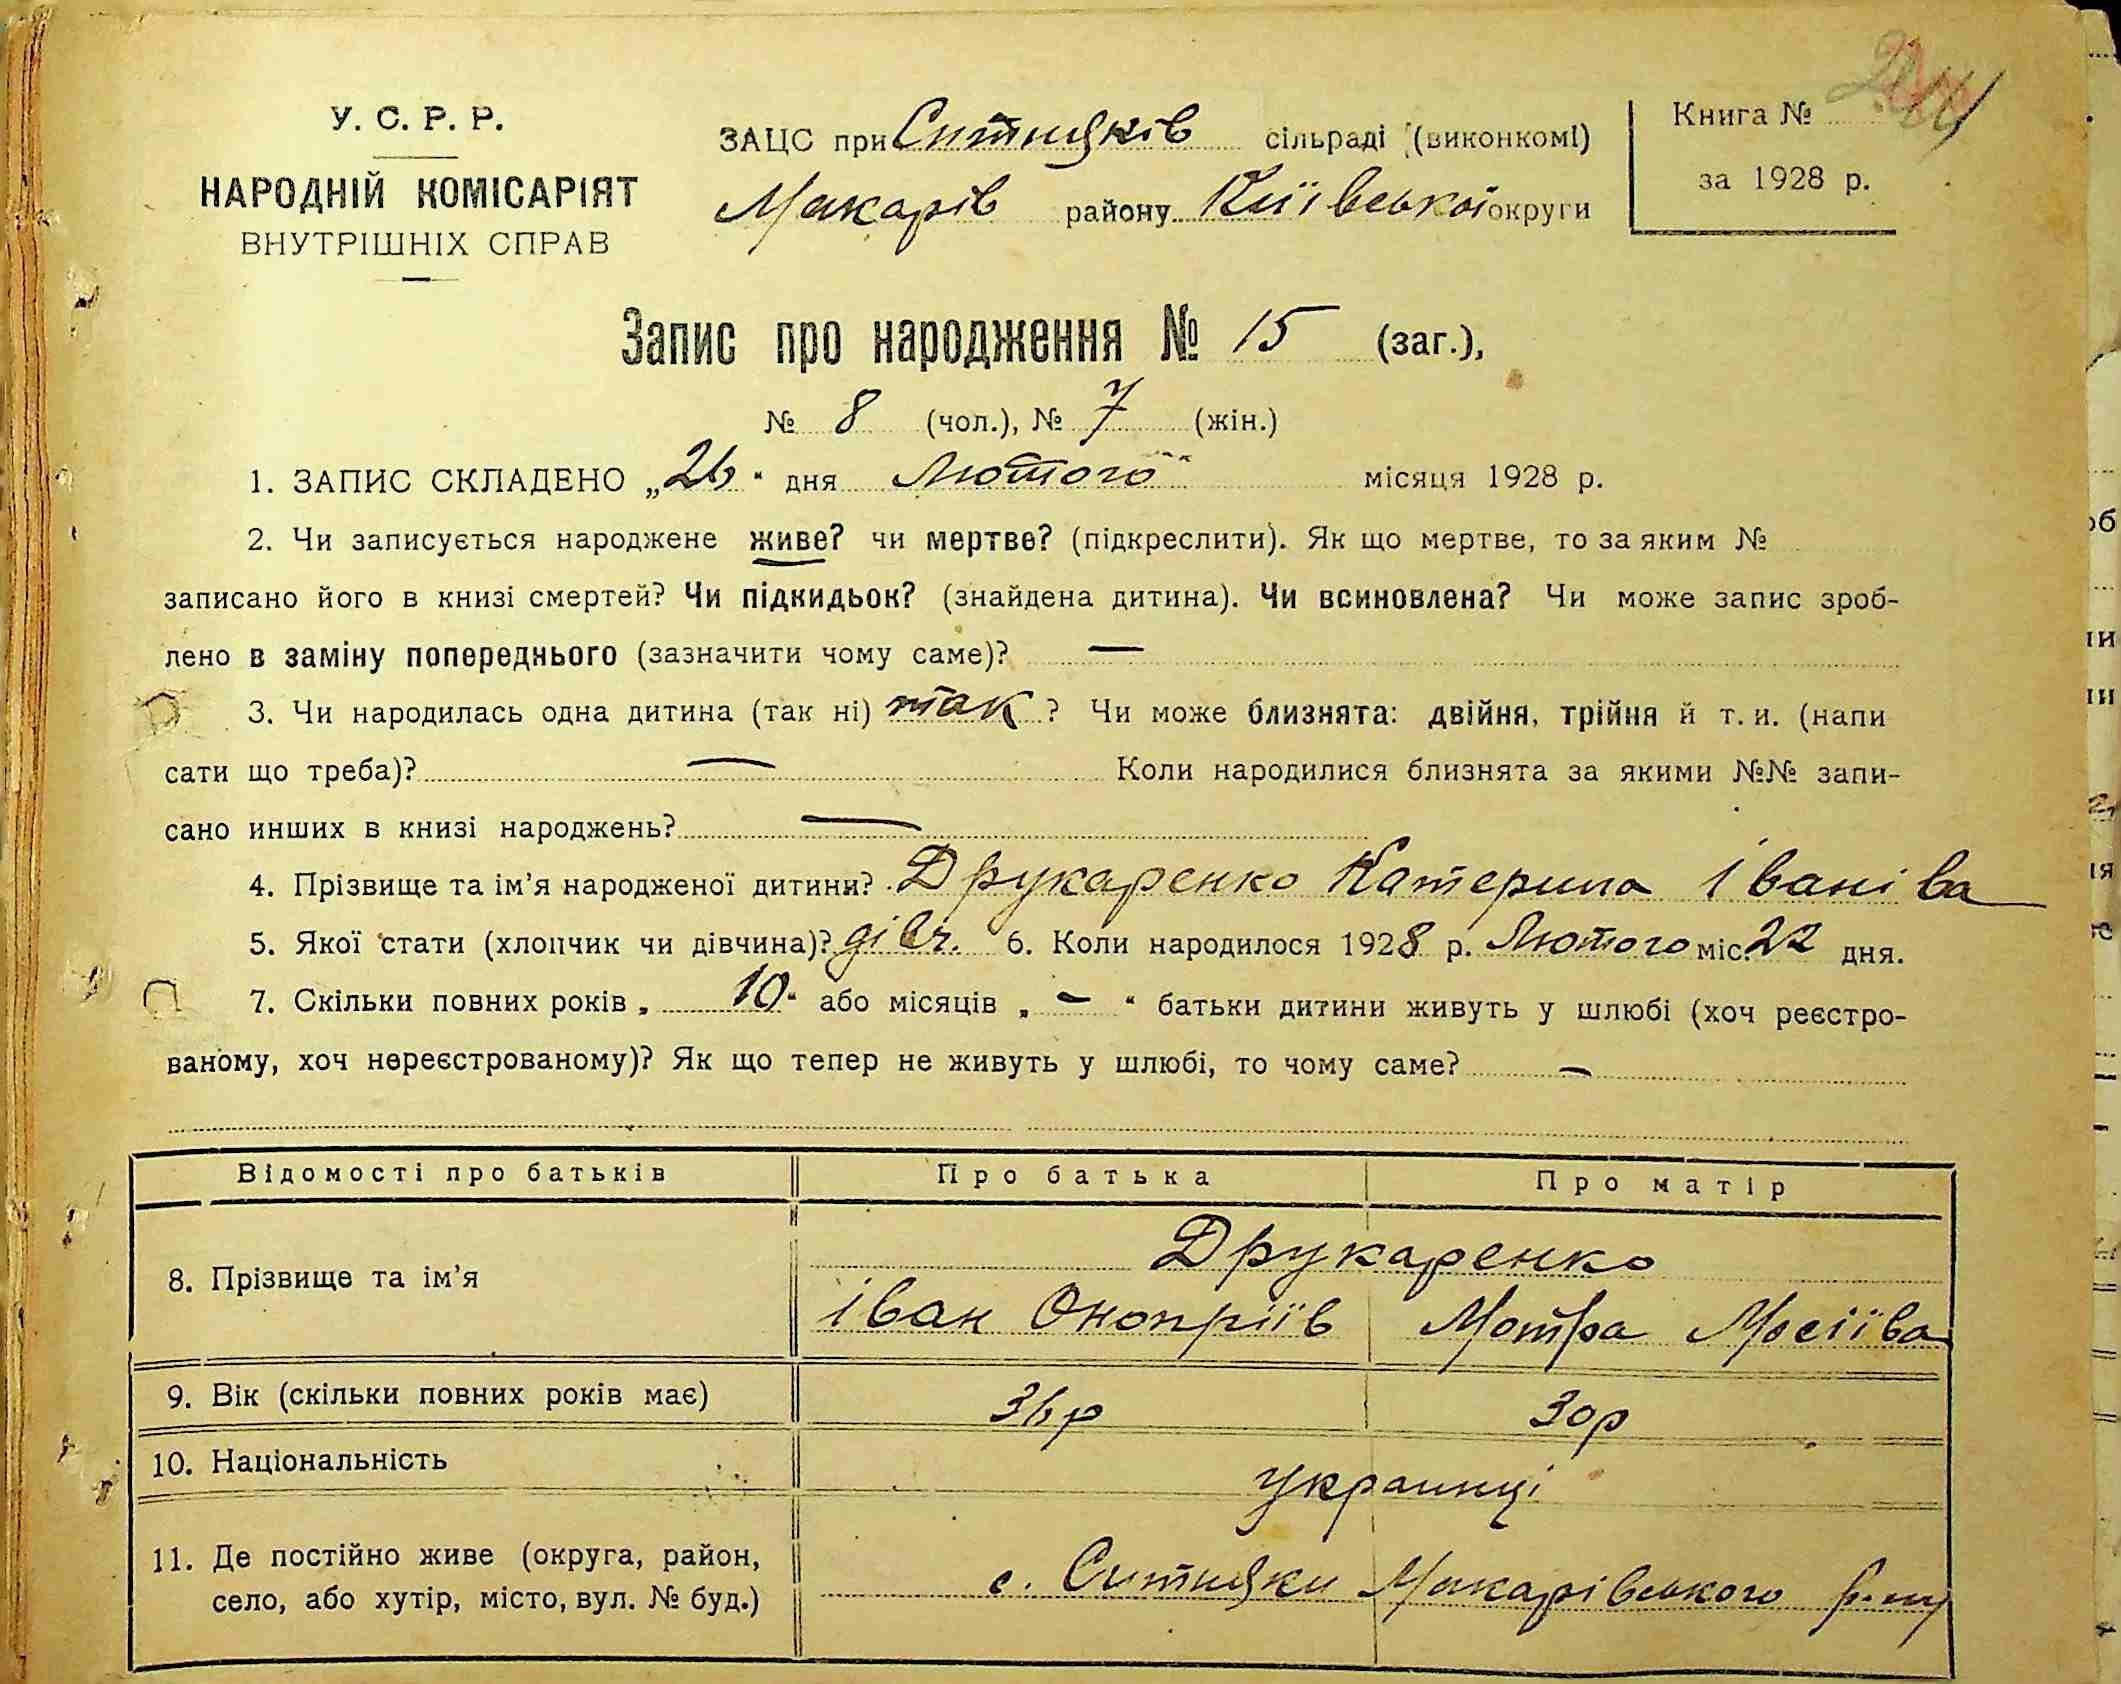 У. С. Р. Р.
НАРОДНІЙ КОМІСАРІЯТ
ВНУТРІШНІХ СПРАВ
ЗАЦС при Ситняків сільраді (виконкомі)
Макарів району Київської округи
Книга №
за 1928 р.
Запис про народження № 15 (заг.),
№ 8 (чол.), № 7 (жін.)
1. ЗАПИС СКЛАДЕНО „26“ дня Лютого місяця 1928 р.
2. Чи записується народжене живе? чи мертве? (підкреслити). Як що мертве, то за яким №
записано його в книзі смертей? Чи підкидьок? (знайдена дитина). Чи всиновлена? Чи може запис зроб-
лено в заміну попереднього (зазначити чому саме)? —
3. Чи народилась одна дитина (так ні) так? Чи може близнята: двійня, трійня й т. и. (напи
сати що треба)? — Коли народилися близнята за якими №№ запи-
сано инших в книзі народжень? —
4. Прізвище та ім’я народженої дитини? Друкаренко Катерина Іваніва
5. Якої стати (хлопчик чи дівчина)? дівч. 6. Коли народилося 1928 р. Лютого міс. 22 дня.
7. Скільки повних років „ 10 “ або місяців „ — “ батьки дитини живуть у шлюбі (хоч реєстро-
ваному, хоч нереєстрованому)? Як що тепер не живуть у шлюбі, то чому саме? —
Відомості про батьків Про батька Про матір
8. Прізвище та ім’я Друкаренко
Іван Онопріїв Мотра Мосіїва
9. Вік (скільки повних років має) 36р 30р
10. Національність украинці
11. Де постійно живе (округа, район,
село, або хутір, місто, вул. № буд.) с. Ситняки Макарівського р-ну